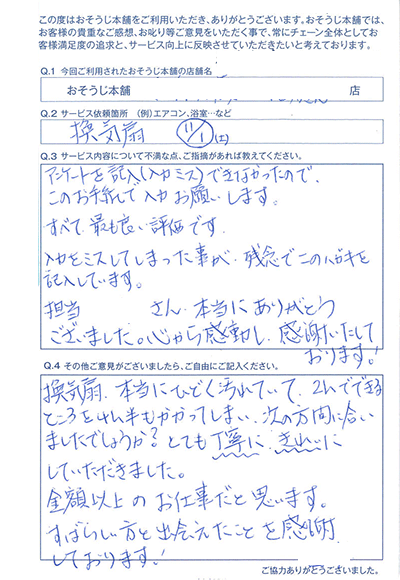 この度はおそうじ本舗をご利用いただき、ありがとうございます。おそうじ本舗では、
お客様の貴重なご感想、お叱り等ご意見をいただく事で、常にチェーン全体としてお
客様満足度の追求と、サービス向上に反映させていただきたいと考えております。
Q.1 今回ご利用されたおそうじ本舗の店舗名
おそうじ本舗 店
Q.2 サービス依頼箇所 (例)エアコン、浴室…など
換気扇 11/1 (土)
Q.3 サービス内容について不満な点、ご指摘があれば教えてください。
アンケートを記入(入力ミス)できなかったので、
このお手紙で入力お願いします。
すべて最も良い評価です。
入力をミスしてしまった事が、残念でこのハガキを
記入しています。
担当 さん、本当にありがとう
ございました。心から感動し、感謝いたして
おります!
Q.4 その他ご意見がございましたら、ご自由にご記入ください。
換気扇、本当にひどく汚れていて、2hでできる
ところを4h半もかかってしまい、次の方間に合い
ましたでしょうか?とても丁寧に、きれいに
していただきました。
金額以上のお仕事だと思います。
すばらしい方と出会えたことを感謝
しております!
ご協力ありがとうございました。